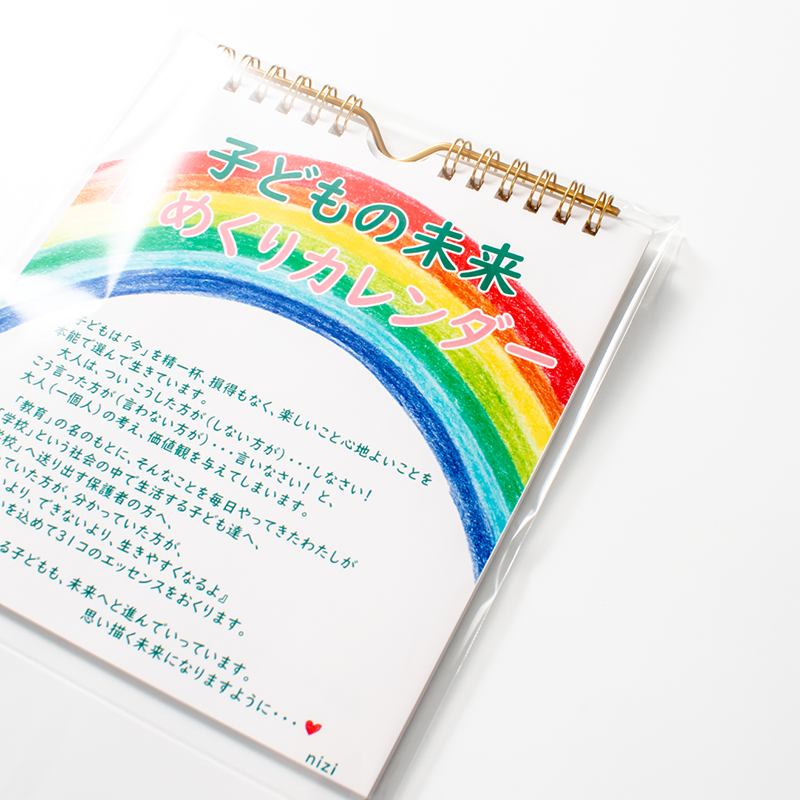 子どもの未来
めくりカレンダー
子どもは「今」を精一杯、損得もなく、楽しいこと心地よいことを
本能で選んで生きています。
大人は、つい こうした方が(しない方が)・・・しなさい!
こう言った方が(言わない方が)・・・言いなさい! と、
大人(一個人)の考え、価値観を与えてしまいます。
「教育」の名のもとに、そんなことを毎日やってきたわたしが
「学校」という社会の中で生活する子ども達へ、
校」へ送り出す保護者の方へ、
っていた方が、分かっていた方が、
いより、できないより、生きやすくなるよ』
いを込めて31コのエッセンスをおくります。
る子どもも、未来へと進んでいっています。
思い描く未来になりますように・・・
nizi